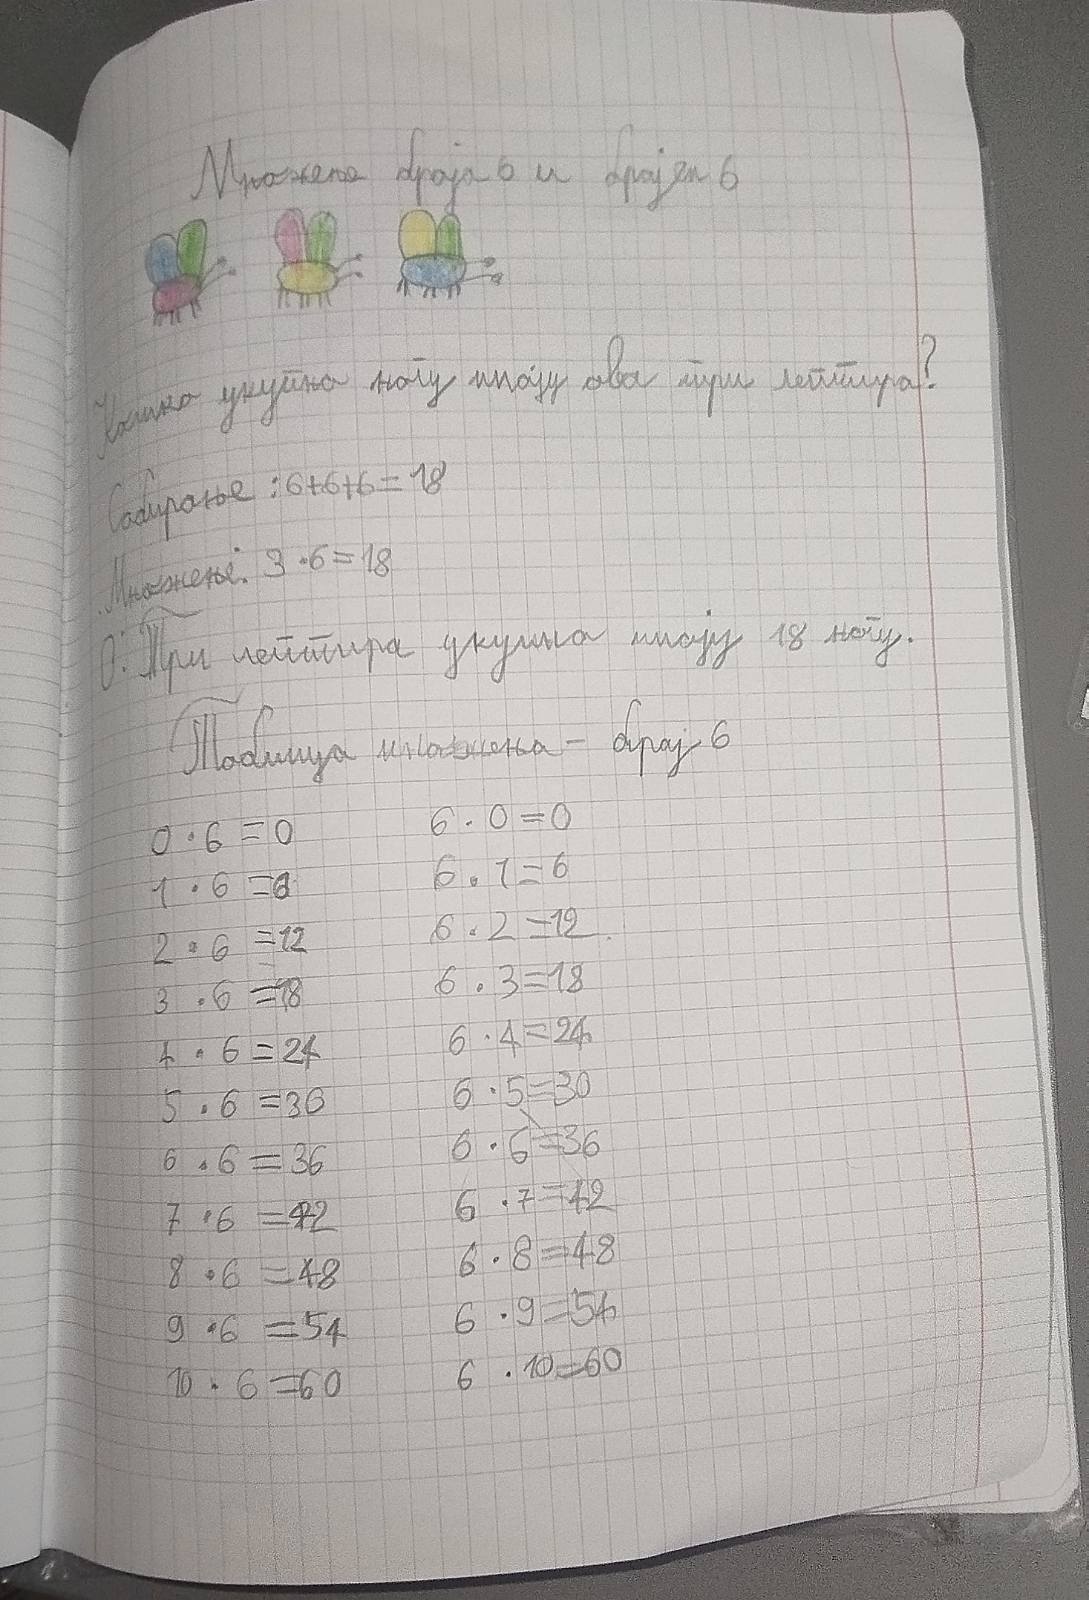 Множење броја 6 и бројем 6
Колико укупно ногу имају ова три лептира?
Сабирање : 6+6+6=18
Множење: 3·6=18
О: Три лептира укупно имају 18 ногу.
Таблица множења - број 6
0·6=0 6·0=0
1·6=6 6·1=6
2·6=12 6·2=12
3·6=18 6·3=18
4·6=24 6·4=24
5·6=30 6·5=30
6·6=36 6·6=36
7·6=42 6·7=42
8·6=48 6·8=48
9·6=54 6·9=54
10·6=60 6·10=60